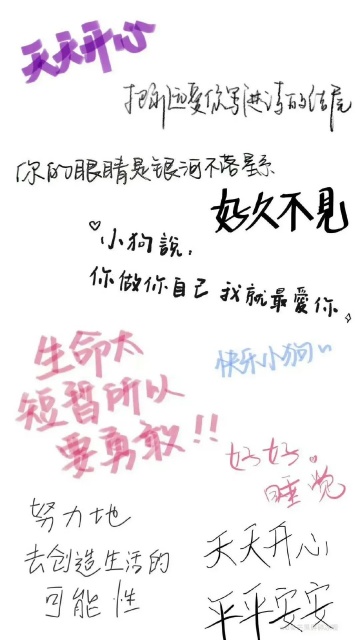 天天开心
把永远爱你写进诗的结尾
你的眼睛是银河不落星系
好久不见
小狗說,
你做你自己 我就最愛你
生命太
短暂所以
要勇敢!!
快乐小狗
好好
睡觉
努力地
去创造生活的
可能性
天天开心
平平安安